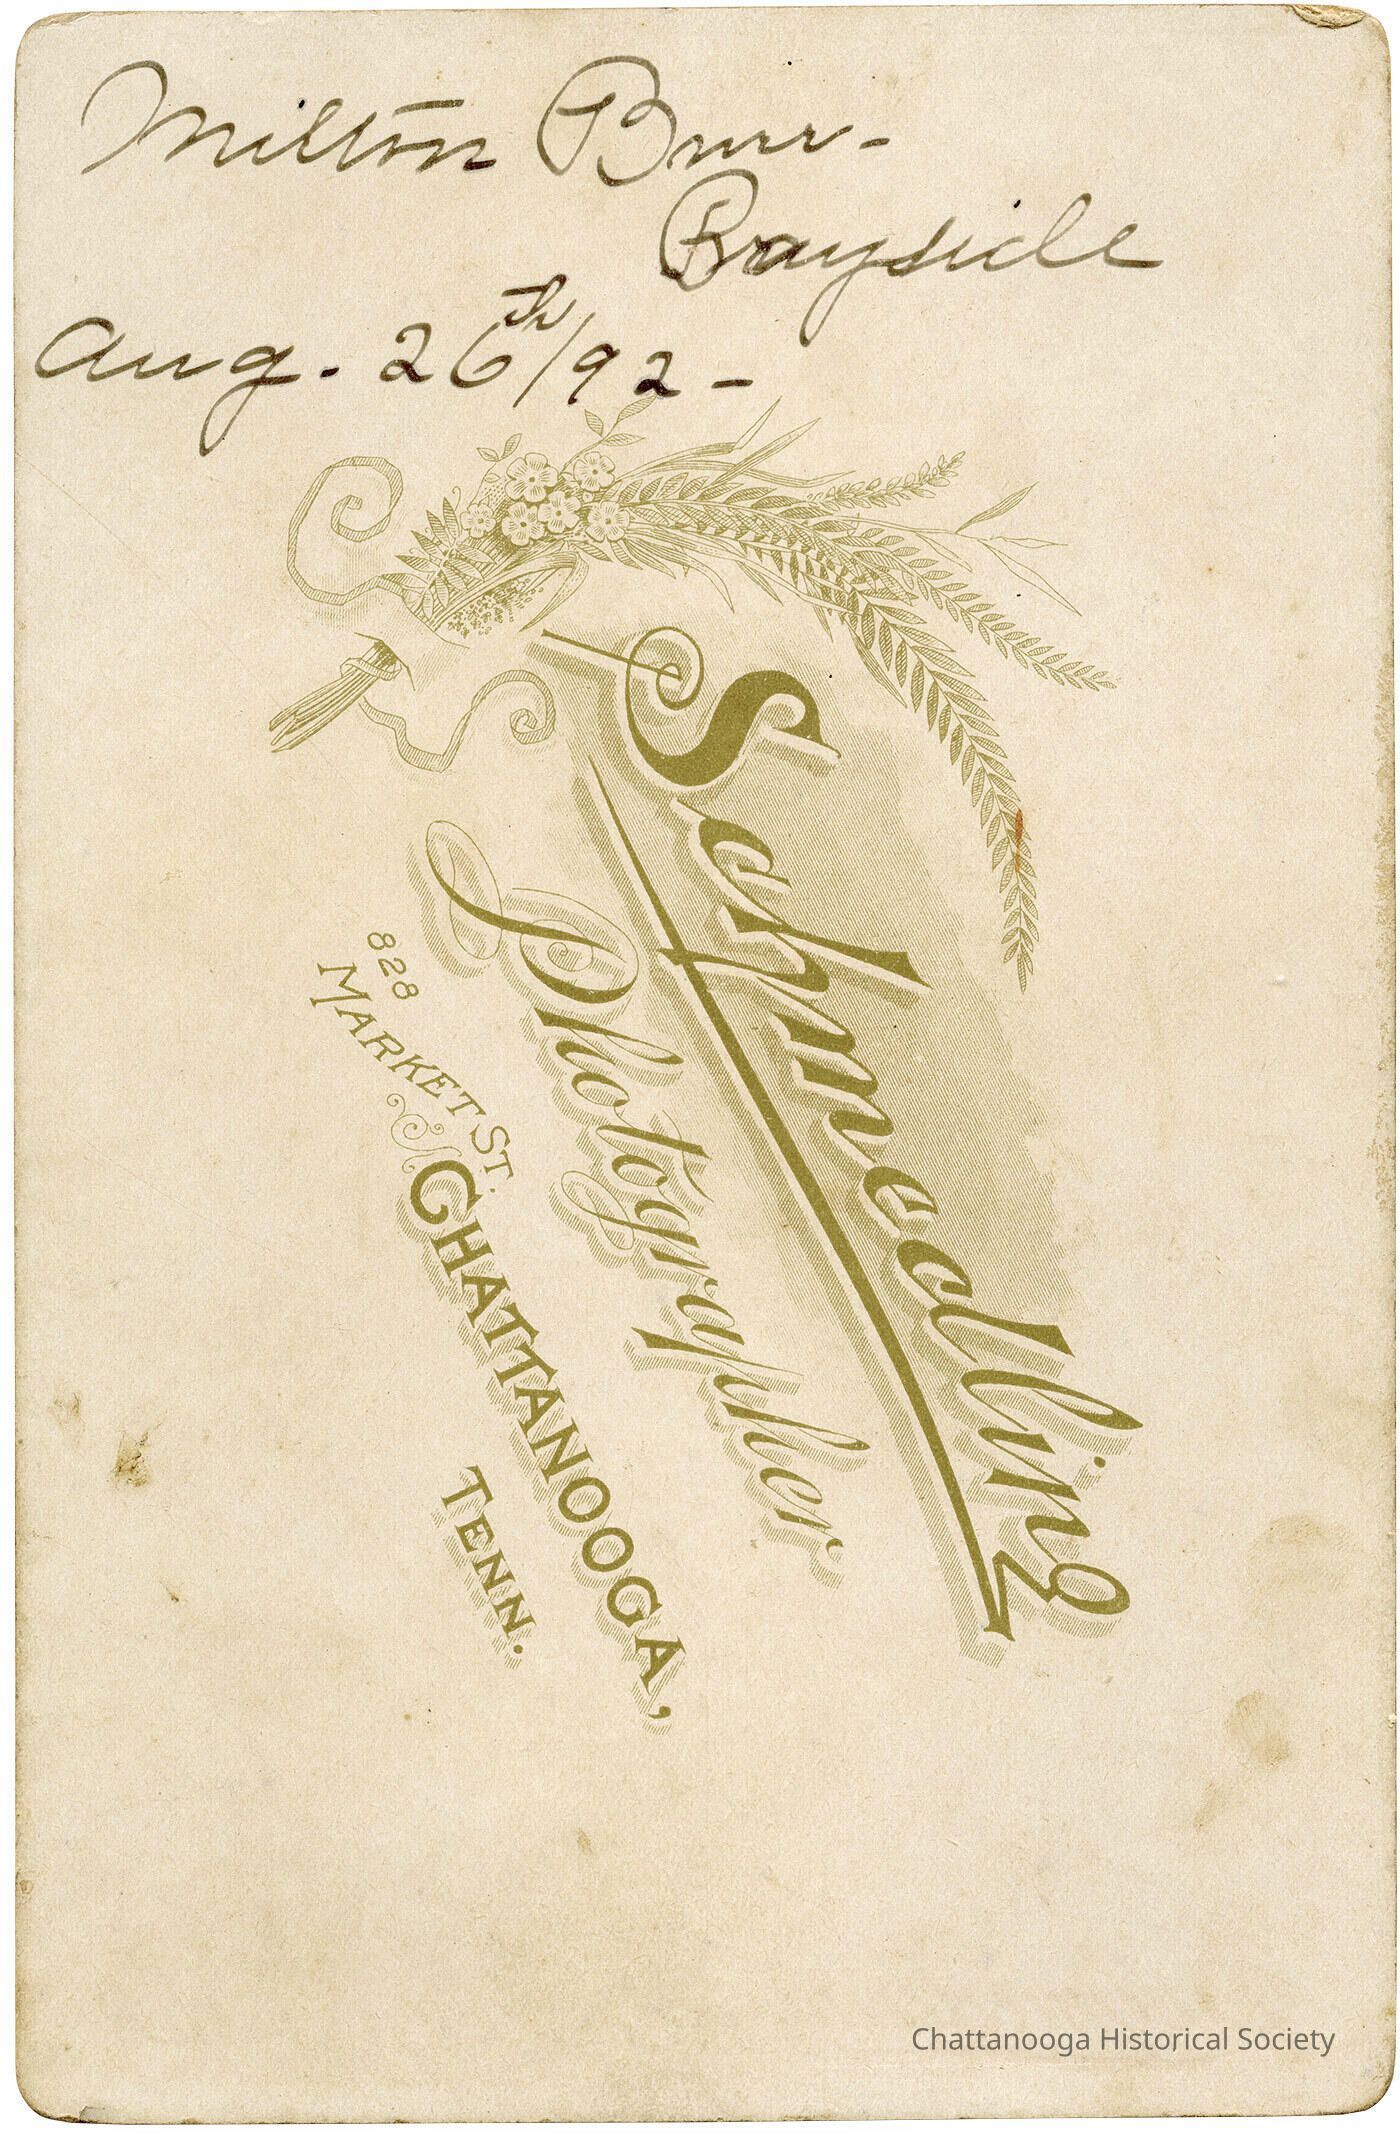 Milton Burr-
Brayside
Aug. 26th/92-
Schmedling
Photographer
828
MARKET ST.
CHATTANOOGA,
TENN.
Chattanooga Historical Society